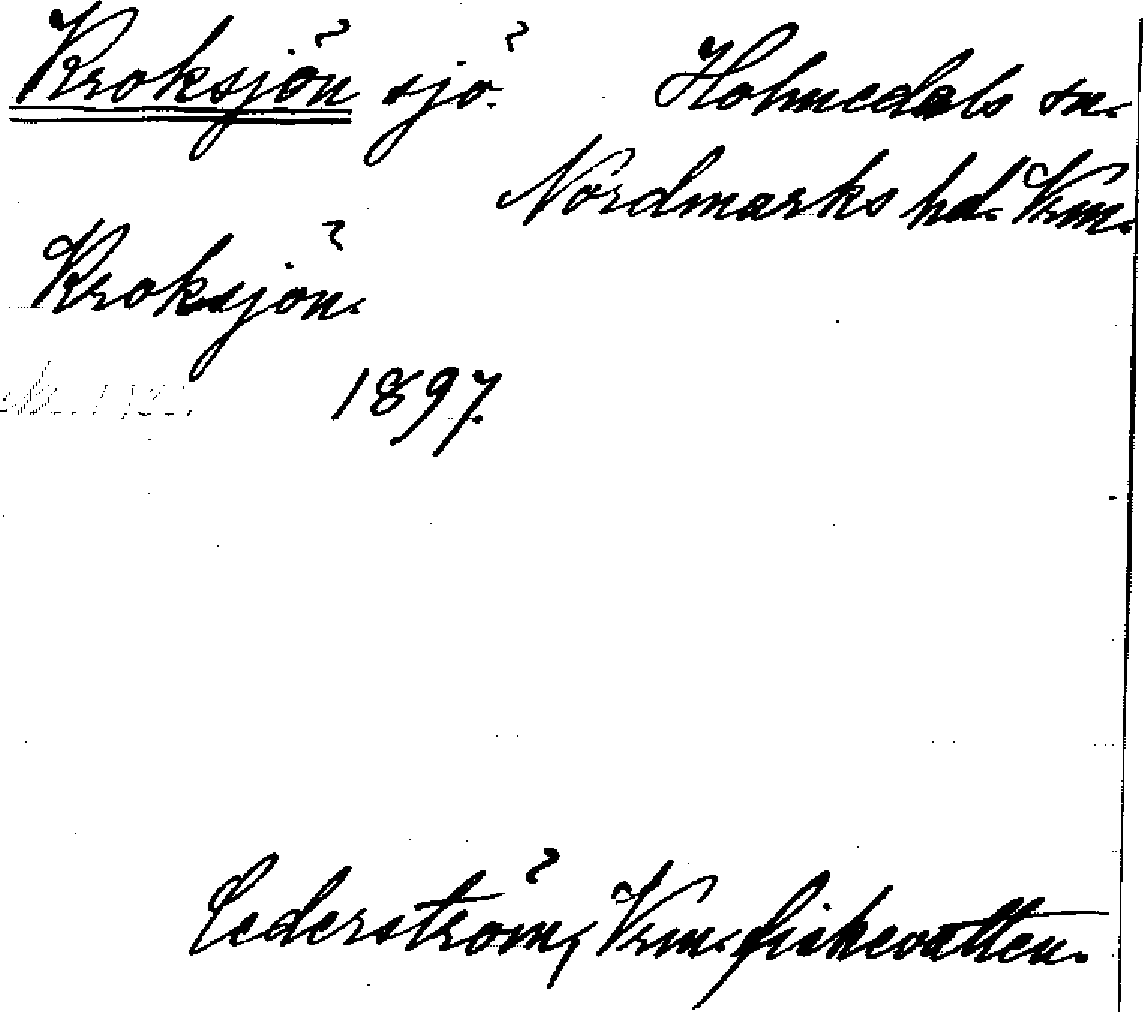 Kroksjön sjö. Holmedals sn.
Nordmarks hd. Vrm.
Kroksjön.
1897.
Cederström, Vrm. fiskevatten.